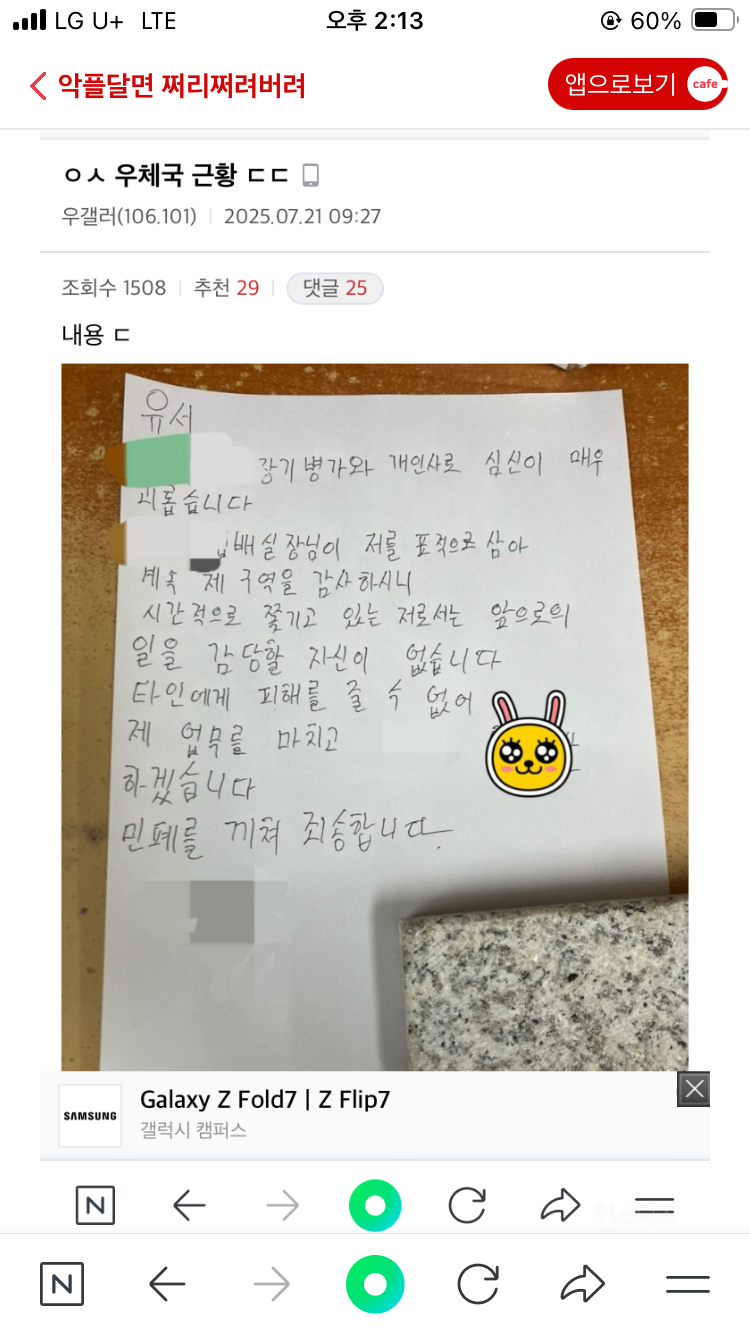 LG U+ LTE 오후 2:13 60%
악플달면 쩌리쩌려버려
앱으로보기 cafe
ㅇㅅ 우체국 근황 ㄷㄷ
우갤러(106.101) 2025.07.21 09:27
조회수 1508 추천 29 댓글 25
내용 ㄷ
유서
장기병가와 개인사로 심신이 매우
괴롭습니다
배실장님이 저를 표적으로 삼아
계속 제 구역을 감사하시니
시간적으로 쫓기고 있는 저로서는 앞으로의
일을 감당할 자신이 없습니다
타인에게 피해를 줄 수 없어
제 업무를 마치고
하겠습니다
민폐를 끼쳐 죄송합니다.
SAMSUNG
Galaxy Z Fold7 | Z Flip7
갤럭시 캠퍼스
N
인스티즈
N